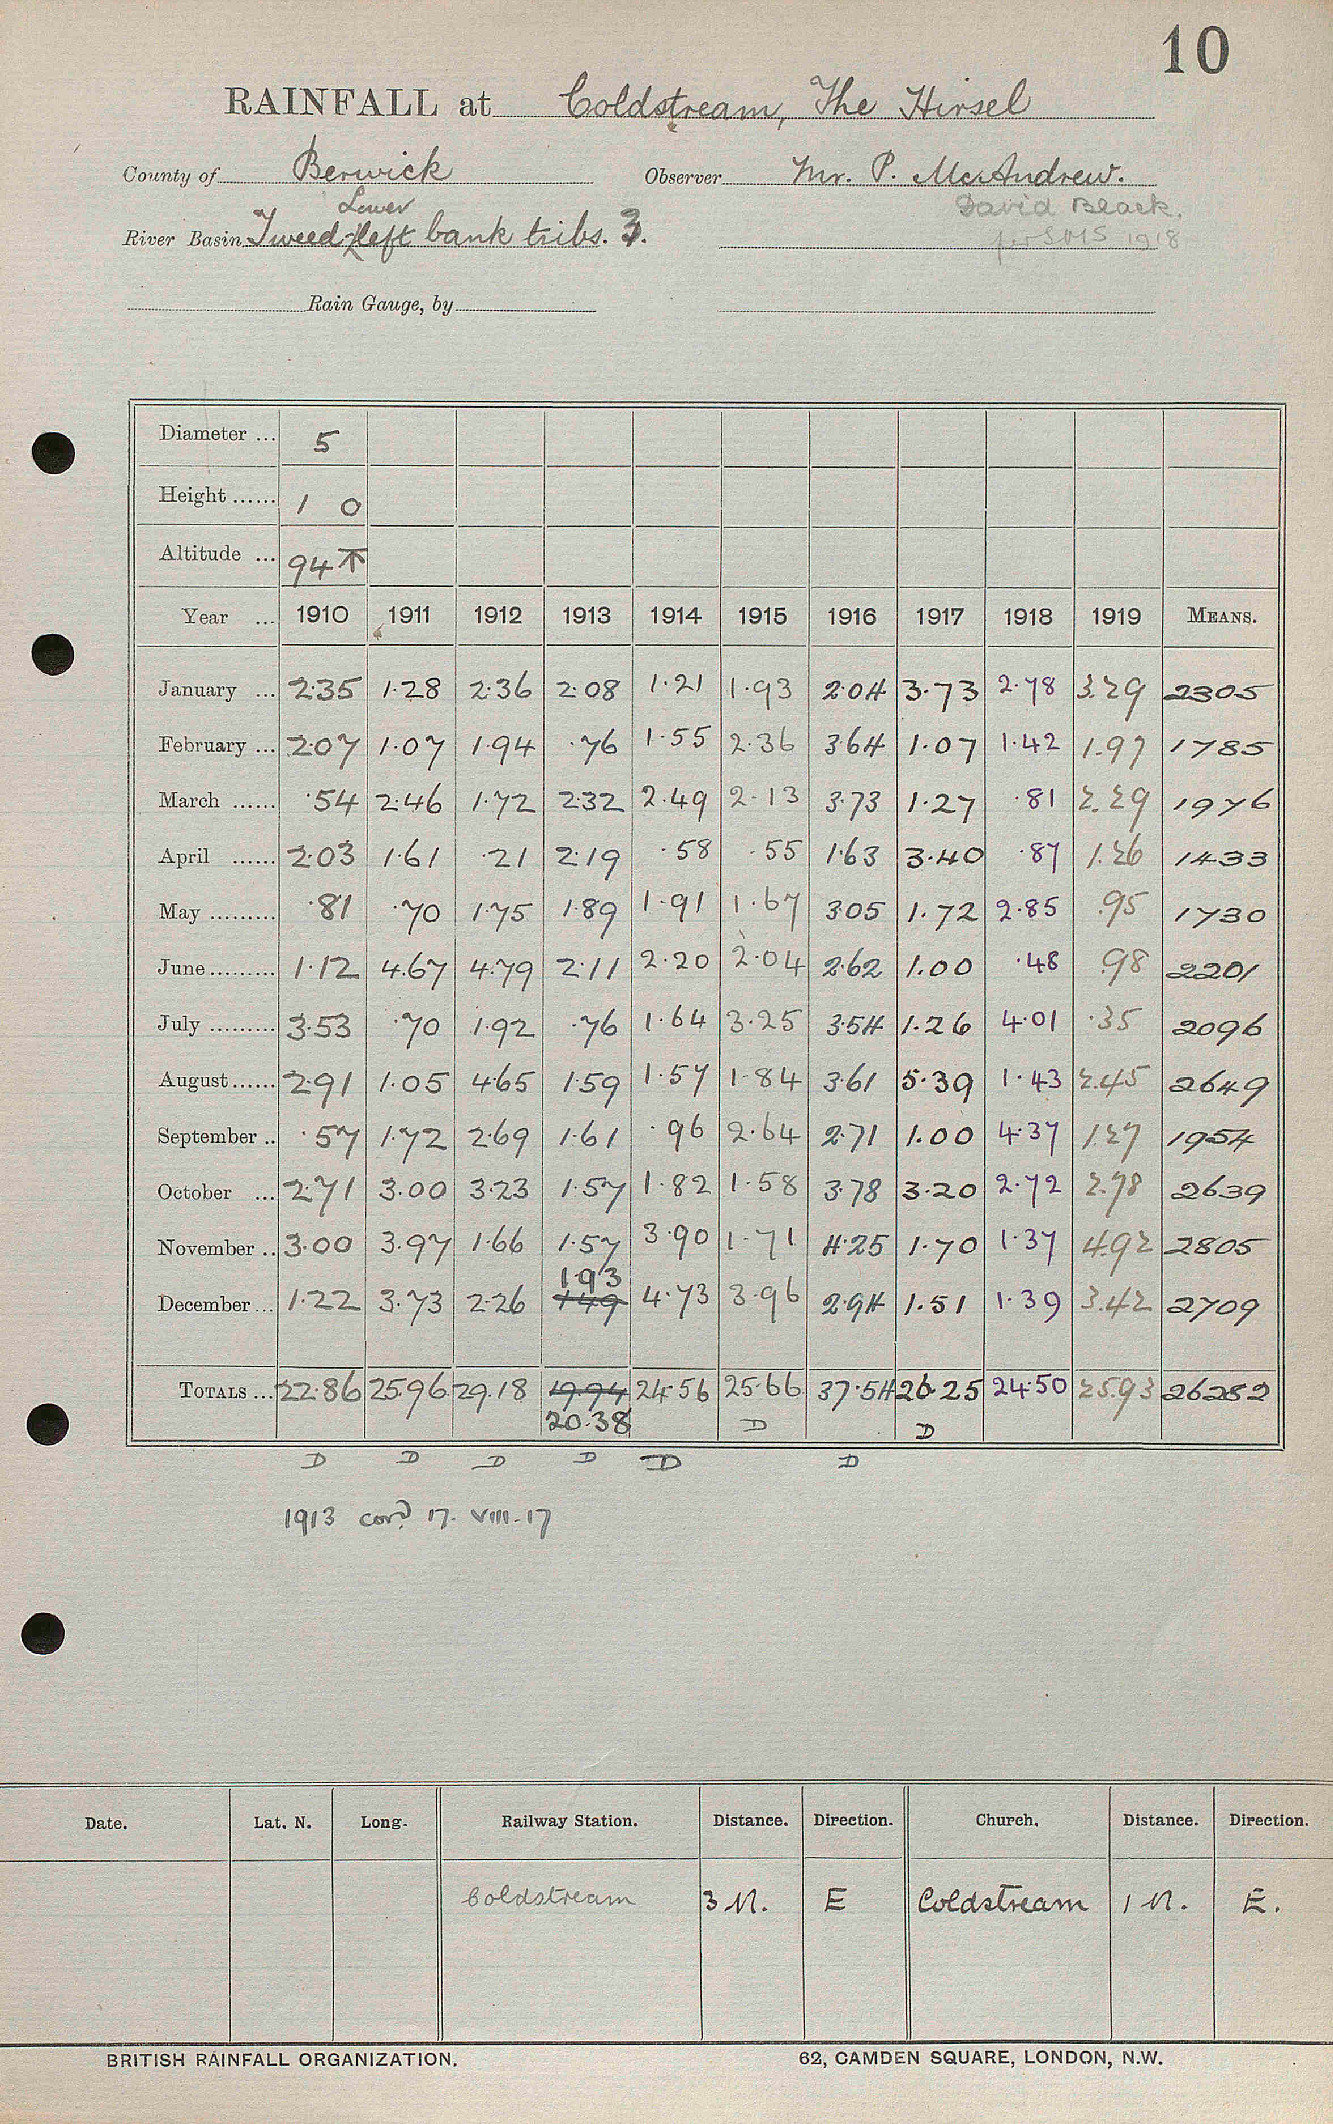 10
RAINFALL at Coldstream, The Hirsel
County of Berwick Observer Mr. P. McAndrew.
Lower David Black.
River Basin Tweed left bank tribs. 3. per SMS 1918
Rain Gauge, by
Diameter ... 5
Height ...... 1 0
Altitude ... 94 ⊼
Year ... 1910 1911 1912 1913 1914 1915 1916 1917 1918 1919 MEANS.
January ... 2.35 1.28 2.36 2.08 1.21 1.93 2.04 3.73 2.78 3.29 2305
February ... 2.07 1.07 1.94 .76 1.55 2.36 3.64 1.07 1.42 1.97 1785
March ...... .54 2.46 1.72 2.32 2.49 2.13 3.73 1.27 .81 2.29 1976
April ...... 2.03 1.61 .21 2.19 .58 .55 1.63 3.40 .87 1.26 1433
May ......... .81 .70 1.75 1.89 1.91 1.67 3.05 1.72 2.85 .95 1730
June ......... 1.12 4.67 4.79 2.11 2.20 2.04 2.62 1.00 .48 .98 2201
July ......... 3.53 .70 1.92 .76 1.64 3.25 3.54 1.26 4.01 .35 2096
August ...... 2.91 1.05 4.65 1.59 1.57 1.84 3.61 5.39 1.43 2.45 2649
September .. .57 1.72 2.69 1.61 .96 2.64 2.71 1.00 4.37 1.27 1954
October ... 2.71 3.00 3.23 1.57 1.82 1.58 3.78 3.20 2.72 2.78 2639
November .. 3.00 3.97 1.66 1.57 3.90 1.71 4.25 1.70 1.37 4.92 2805
1.93
December ... 1.22 3.73 2.26 1.49 4.73 3.96 2.94 1.51 1.39 3.42 2709
TOTALS ... 22.86 25.96 29.18 19.94 24.56 25.66 37.54 26.25 24.50 25.93 26282
20.38 D D
D D D D D D
1913 cord. 17. VIII. 17
Date. Lat. N. Long. Railway Station. Distance. Direction. Church. Distance. Direction.
Coldstream 3 M. E Coldstream 1 M. E.
BRITISH RAINFALL ORGANIZATION. 62, CAMDEN SQUARE, LONDON, N.W.